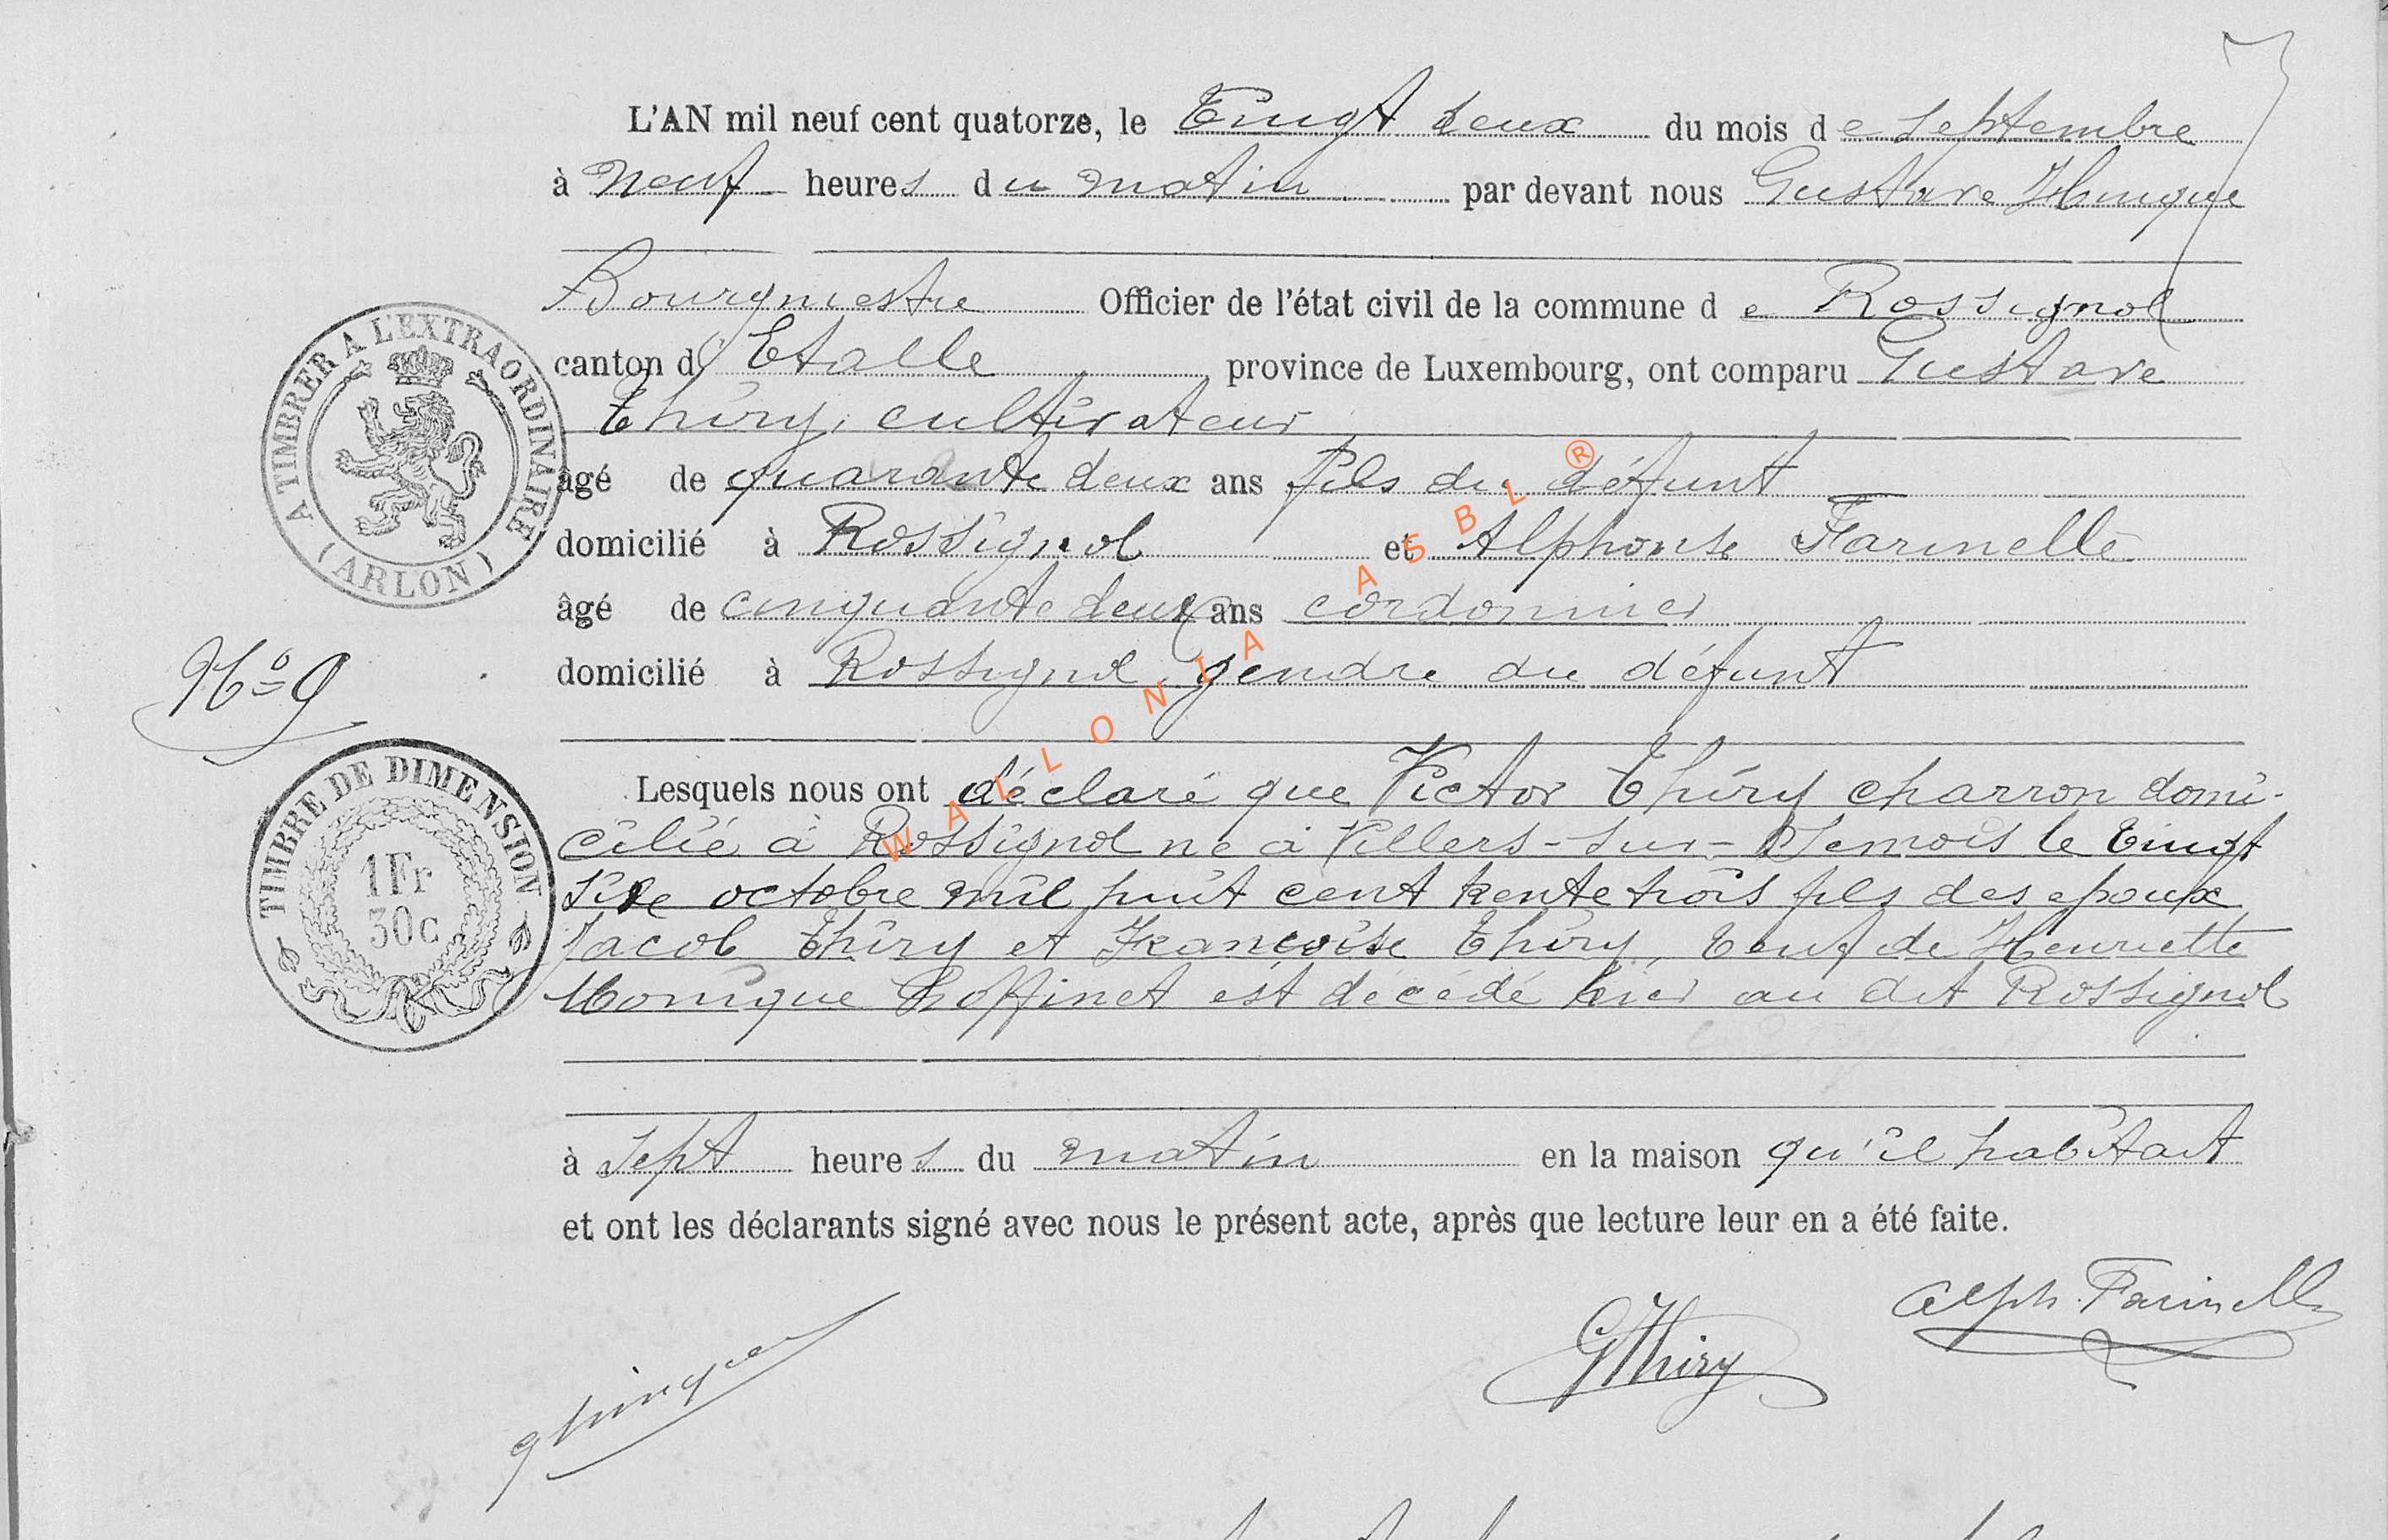 L'AN mil neuf cent quatorze, le Vingt deux du mois de Septembre
à Neuf heures du matin par devant nous Gustave Hinque
Bourgmestre Officier de l'état civil de la commune de Rossignol
canton d' Etalle, province de Luxembourg, ont comparu Gustave
Thiry, cultivateur
âgé de quarante deux ans fils du défunt
domicilié à Rossignol et Alphonse Farinelle
âgé de cinquante deux ans cordonnier
domicilié à Rossignol, gendre du défunt
Lesquels nous ont déclaré que Victor Thiry charron domi-
cilié à Rossignol né à Villers-sur-Semois le vingt
six octobre mil huit cent trente trois fils des epoux
Jacob Thiry et Françoise Thiry, veuf de Henriette
Monique Hoffinet est décédé hier au dit Rossignol
à sept heures du matin en la maison qu'il habitait
et ont les déclarants signé avec nous le présent acte, après que lecture leur en a été faite.
A TIMBRER A L'EXTRAORDINAIRE
(ARLON)
No 9
TIMBRE DE DIMENSION
1Fr
30c
WALLONIA ASBL ®
Alph. Farinelle
GThiry
GHinque